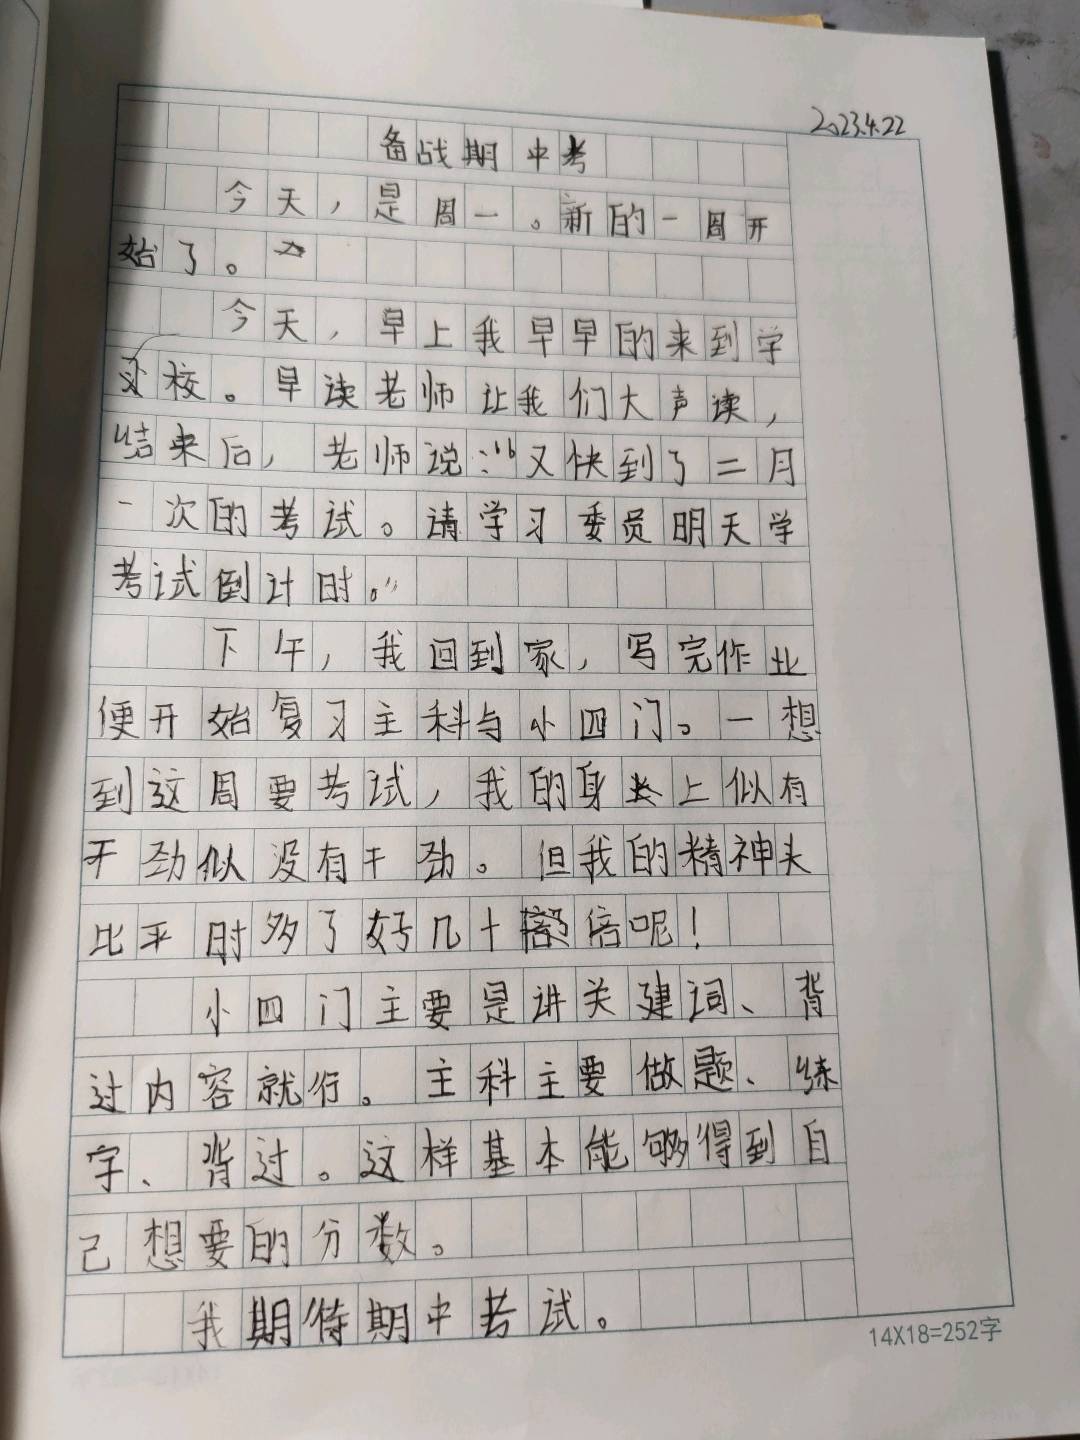 2023.4.22
备战期中考
今天，是周一。新的一周开
始了。
今天，早上我早早的来到学
校。早读老师让我们大声读，
结束后，老师说：“又快到了二月
一次的考试。请学习委员明天学
考试倒计时。”
下午，我回到家，写完作业
便开始复习主科与小四门。一想
到这周要考试，我的身上似有
干劲似没有干劲。但我的精神头
比平时多了好几十倍呢！
小四门主要是讲关建词、背
过内容就行。主科主要做题、练
字、背过。这样基本能够得到自
己想要的分数。
我期待期中考试。
14X18=252字